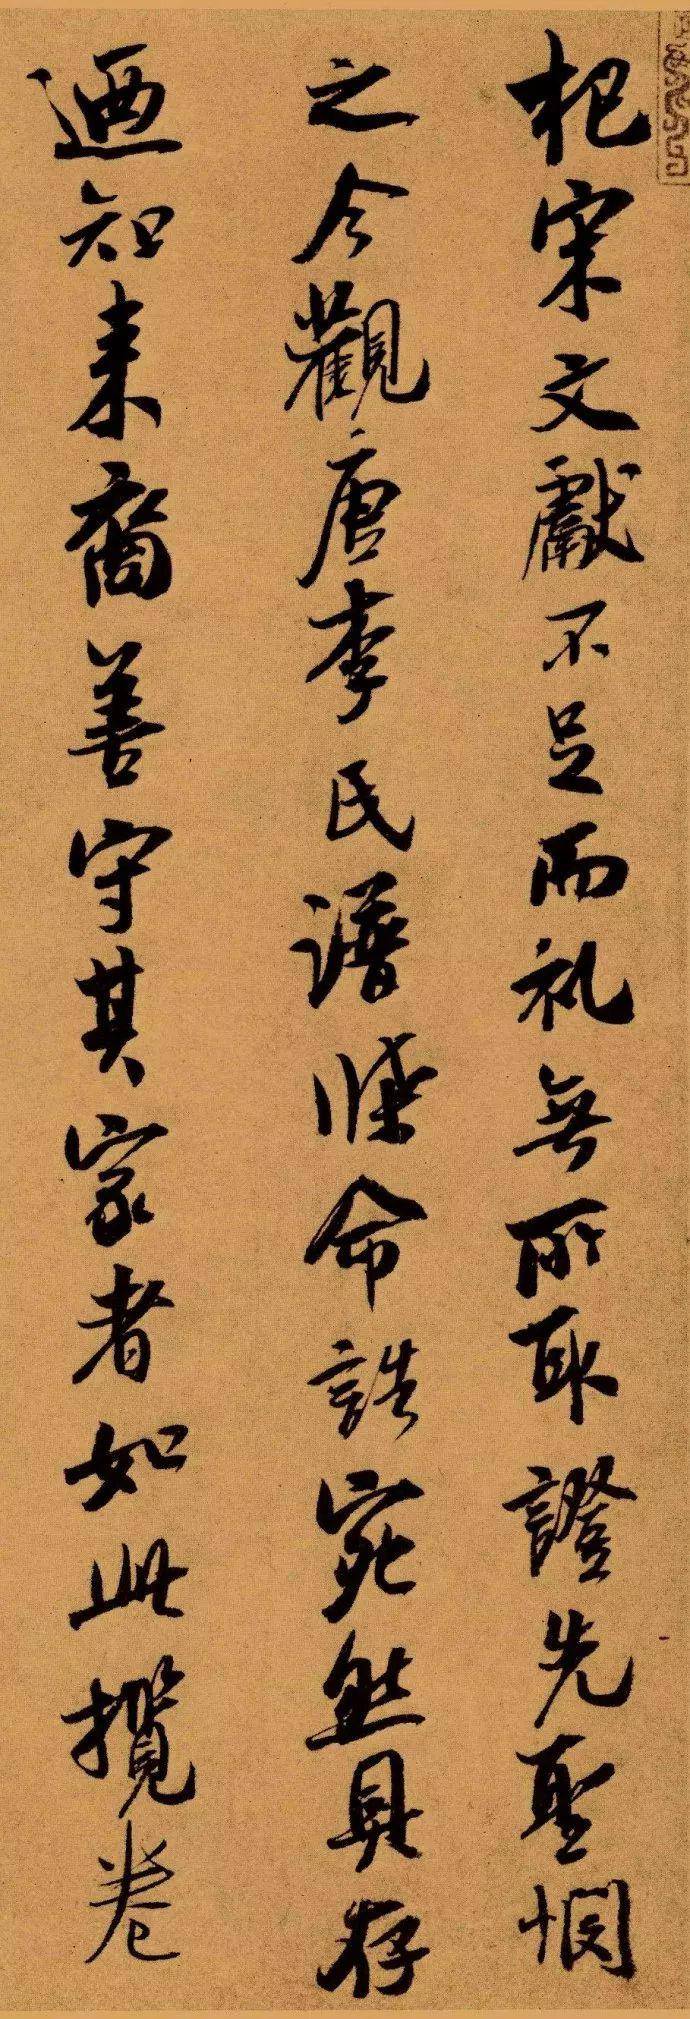 杞宋文獻不足而礼無所取證先聖憫
之今觀唐李氏譜牒命誥宛然具存
迺知来裔善守其家者如此攬卷